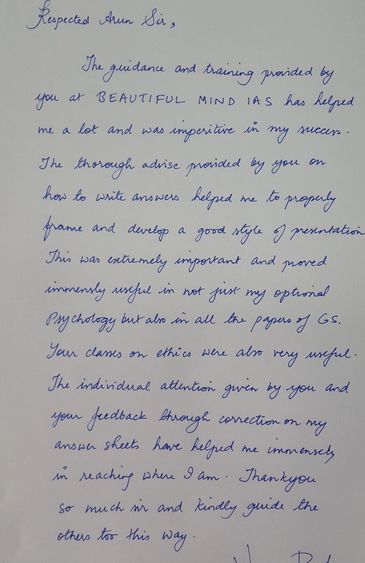 Respected Arun Sir,
The guidance and training provided by
you at BEAUTIFUL MIND IAS has helped
me a lot and was imperitive in my success.
The thorough advise provided by you on
how to write answers helped me to properly
frame and develop a good style of presentation
This was extremely important and proved
immensly useful in not just my optional
Psychology but also in all the papers of GS.
Your classes on ethics were also very useful.
The individual attention given by you and
your feedback through correction on my
answer sheets have helped me immensely
in reaching where I am. Thankyou
so much sir and kindly guide the
others too this way.